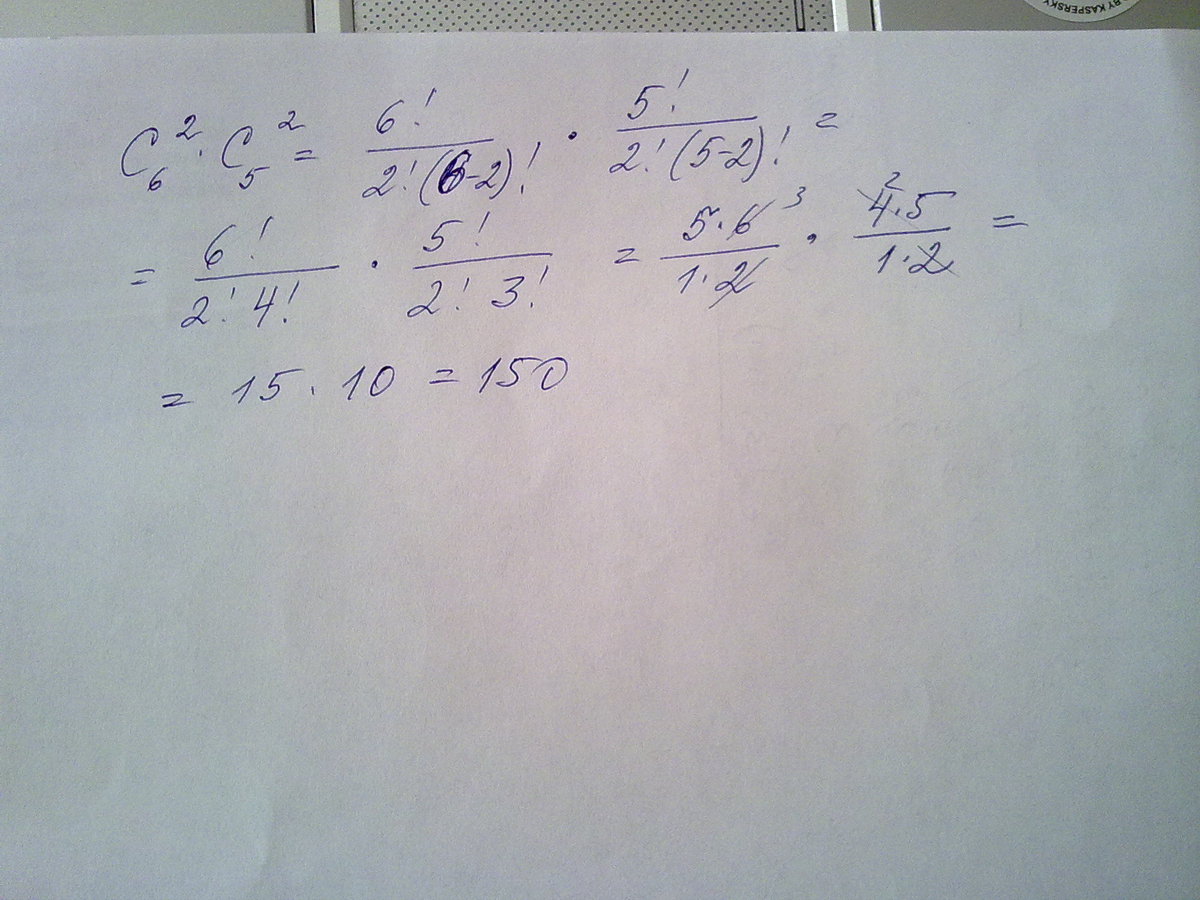 BY KASPERSKY
C₆² · C₅² = 6! / 2!(6-2)! · 5! / 2!(5-2)! =
= 6! / 2! 4! · 5! / 2! 3! = 5·6 3 / 1·2 · 2 4·5 / 1·2 =
= 15 · 10 = 150